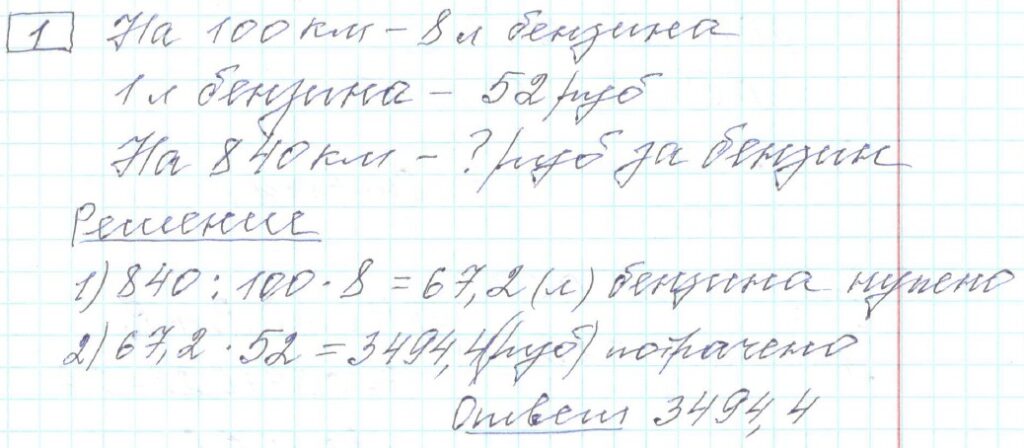 1 На 100 км – 8 л бензина
1 л бензина – 52 руб
На 840 км – ? руб за бензин
Решение
1) 840 : 100 · 8 = 67,2 (л) бензина нужно
2) 67,2 · 52 = 3494,4 (руб) потрачено
Ответ 3494,4